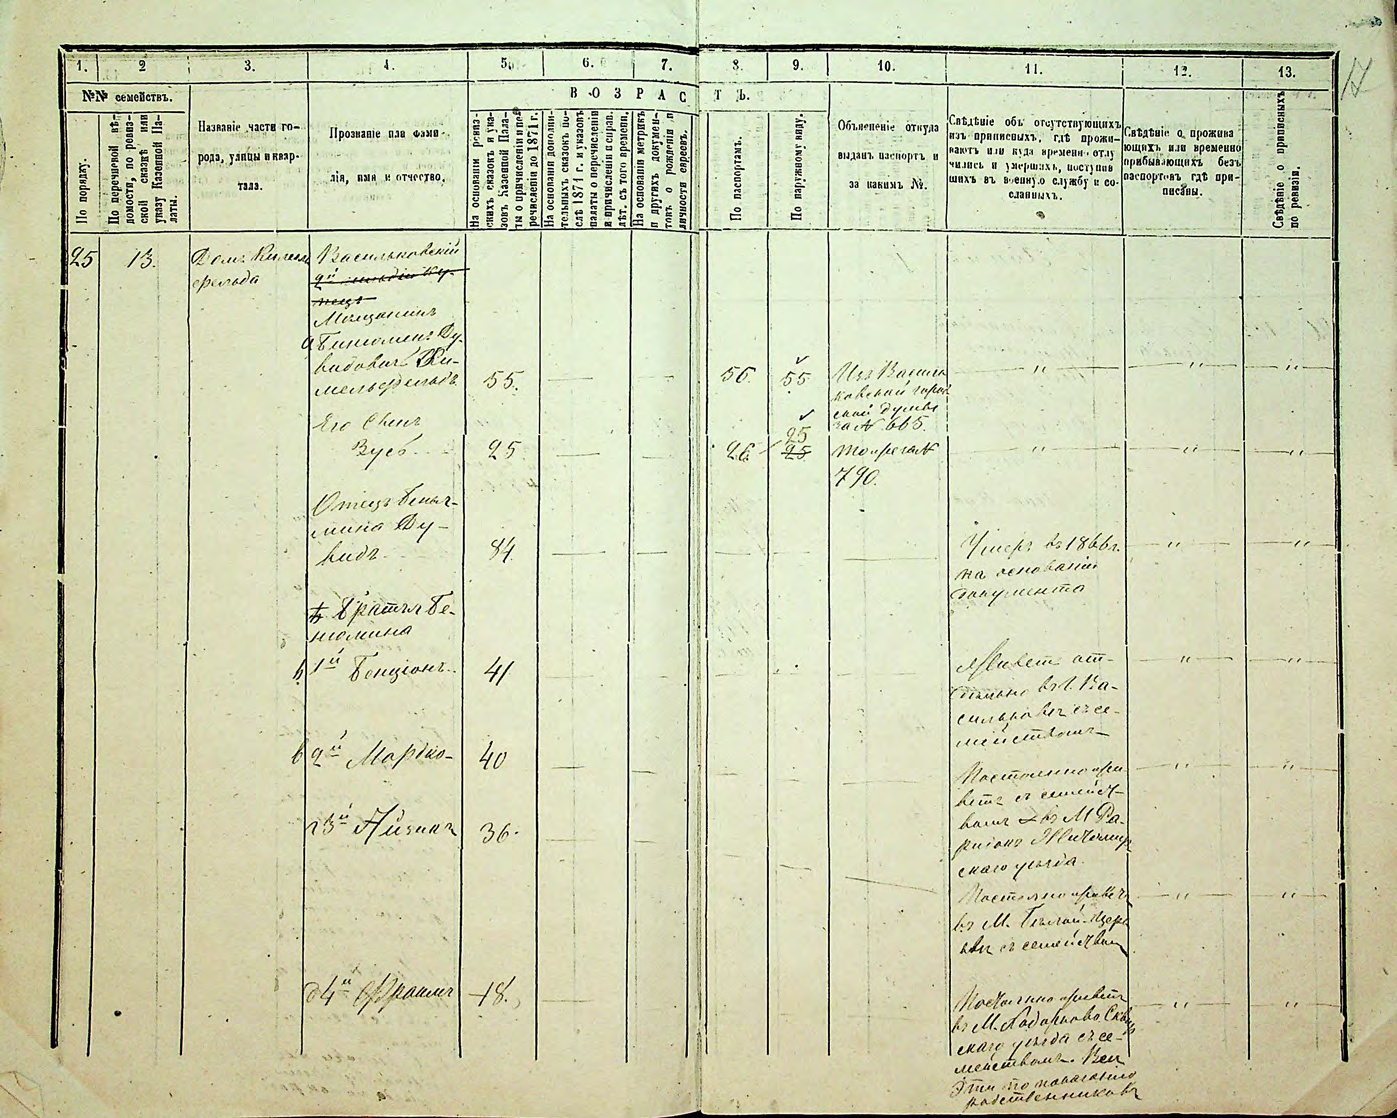 17
1. 2 3. 4. 5. 6. 7. 8. 9. 10. 11. 12. 13.
№№ семействъ.
ВОЗРАСТЪ.
По порядку.
По перечневой вѣ-
домости, по ревиз-
ской сказкѣ или
указу Казенной Па-
латы.
Названіе части го-
рода, улицы и квар-
тала.
Прозваніе или фами-
лія, имя и отчество.
На основаніи ревиз-
скихъ сказокъ и ука-
зовъ Казенной Пала-
ты о причисленіи и пе-
речисленіи до 1871 г.
На основаніи дополни-
тельныхъ сказокъ по-
слѣ 1871 г. и указовъ
палаты о перечисленіи
и причисленіи и справ.
лѣт. съ того времени.
На основаніи метрикъ
и другихъ докумен-
товъ о рожденіи и
личности евреевъ.
По паспортамъ.
По наружному виду.
Объясненіе откуда
выданъ паспортъ и
за какимъ №.
Свѣдѣніе объ отсутствующихъ
изъ приписныхъ, гдѣ прожи-
ваютъ или куда временно отлу
чились и умершихъ, поступив
шихъ въ военную службу и со-
сланныхъ.
Свѣдѣніе о прожива
ющихъ или временно
прибывающихъ безъ
паспортовъ гдѣ при-
писаны.
Свѣдѣніе о приписныхъ
по ревизіи.
25 13. Домъ
Васильковскій
2й гильдіи Ку-
пецъ
Мѣщанинъ
Бинюменъ Ду-
видовичъ Ки-
мельфельдъ 55. 56. 55 Изъ Василь
ковской город
ской думы
за № 665.
Его Сынъ
Зусь 25 26 25 25 тоже за №
790.
Отецъ Бенья-
мина Ду-
видъ 84. Умеръ въ 1866 г.
на основаніи
документа
Братья Бе-
нюмина
1й Бенціонъ 41 Живетъ от-
дельно въ г. Ва-
сильковѣ съ се-
мействомъ
2й Мордко 40 Постоянно жи-
ветъ съ семейст-
вомъ въ М. Ра-
скаго уѣзда.
3й Айзикъ 36. Постоянно живетъ
въ М. Бѣлой-Церк
вѣ съ семействомъ
4й Фроимъ 18. Постоянно живетъ
въ М. Ходорково Сквир
скаго уѣзда съ се-
мействомъ. Всѣ
Эти по показанію
родственниковъ